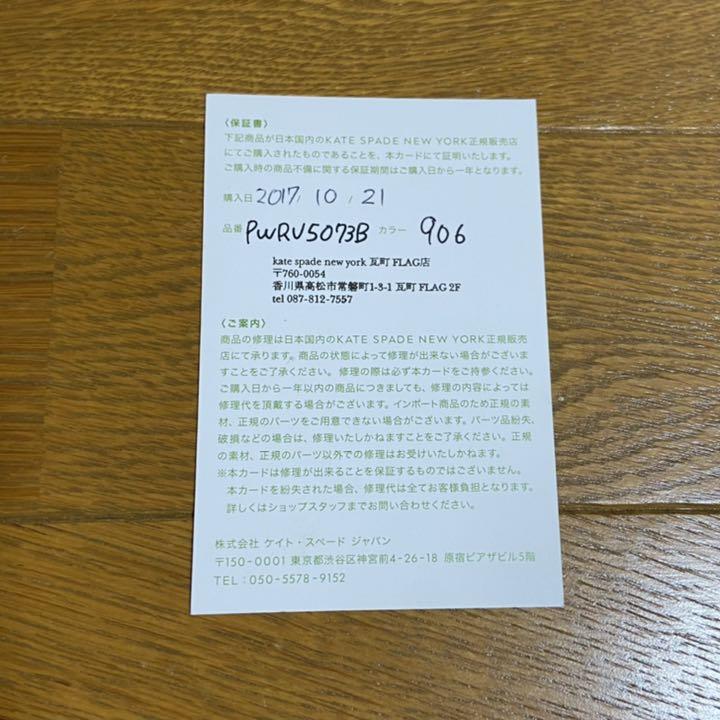 〈保証書〉
下記商品が日本国内のKATE SPADE NEW YORK正規販売店
にてご購入されたものであることを、本カードにて証明いたします。
ご購入時の商品不備に関する保証期間はご購入日から一年となります。
購入日 2017/ 10 / 21
品番 PWRU5073B カラー 906
kate spade new york 瓦町 FLAG店
〒760-0054
香川県高松市常磐町1-3-1 瓦町 FLAG 2F
tel 087-812-7557
〈ご案内〉
商品の修理は日本国内のKATE SPADE NEW YORK正規販売
店にて承ります。商品の状態によって修理が出来ない場合がございま
すことをご了承ください。修理の際は必ず本カードをご持参ください。
ご購入日から一年以内の商品につきましても、修理の内容によっては
修理代を頂戴する場合がございます。インポート商品のため正規の素
材、正規のパーツをご用意できない場合がございます。パーツ品紛失、
破損などの場合は、修理いたしかねますことをご了承ください。正規
の素材、正規のパーツ以外での修理はお受けいたしかねます。
※本カードは修理が出来ることを保証するものではございません。
本カードを紛失された場合、修理代は全てお客様負担となります。
詳しくはショップスタッフまでお問い合わせください。
株式会社 ケイト・スペード ジャパン
〒150-0001 東京都渋谷区神宮前4-26-18 原宿ピアザビル5階
TEL：050-5578-9152